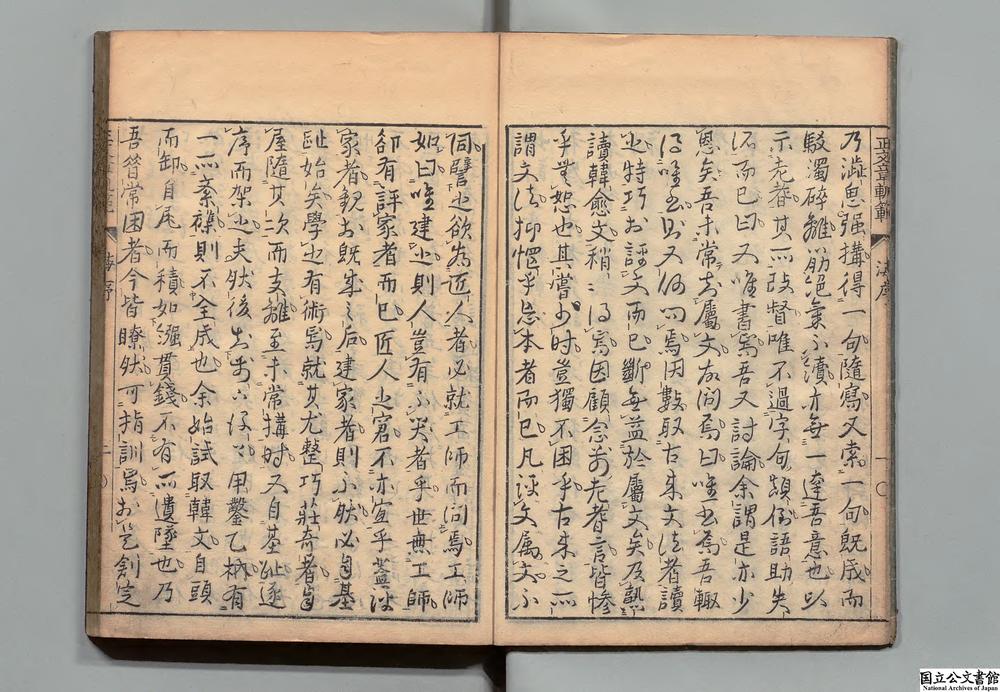 正文章軌範
海序
乃澁思强搆得一句隨寫又索一句既成而
駁濁碎離筋絕氣不瀆亦無一達吾意也以
示老耆其所改督唯不過字句顛倒語助失
而已曰又唯書焉吾又討論余謂是亦少
恩矣吾未常知屬文故問焉曰唯書焉吾輙
得唯書則又何問焉因數取古來文法者讀
之特巧於評文而已斷無益於屬文矣及熟
讀韓愈文稍〻得焉因顧念前老耆言皆慘
乎無恕也其嘗少時豈獨不困乎古來之所
謂文法抑慍乎忘本者而已凡評文屬文不
同譬之欲爲匠人者必就工師而問焉工師
如曰唯建之則人豈有不哭者乎世無工師
卻有評家者而已匠人之窘不亦宜乎蓋評
家者觀於既成之后建家者則不然必自基
趾始矣學之有術焉就其尤整巧莊奇者自
屋隨其次而支離至未常搆時又自基趾逐
序而架之夫然後知步六
甲鑿乙枘有
一所紊襍則不全成也余始試取韓文自頭
而卸自尾而積如繦貫錢不有所遺墜也乃
吾昝常困者今皆瞭然可指訓焉於是創定
海序
二
国立公文書館
National Archives of Japan